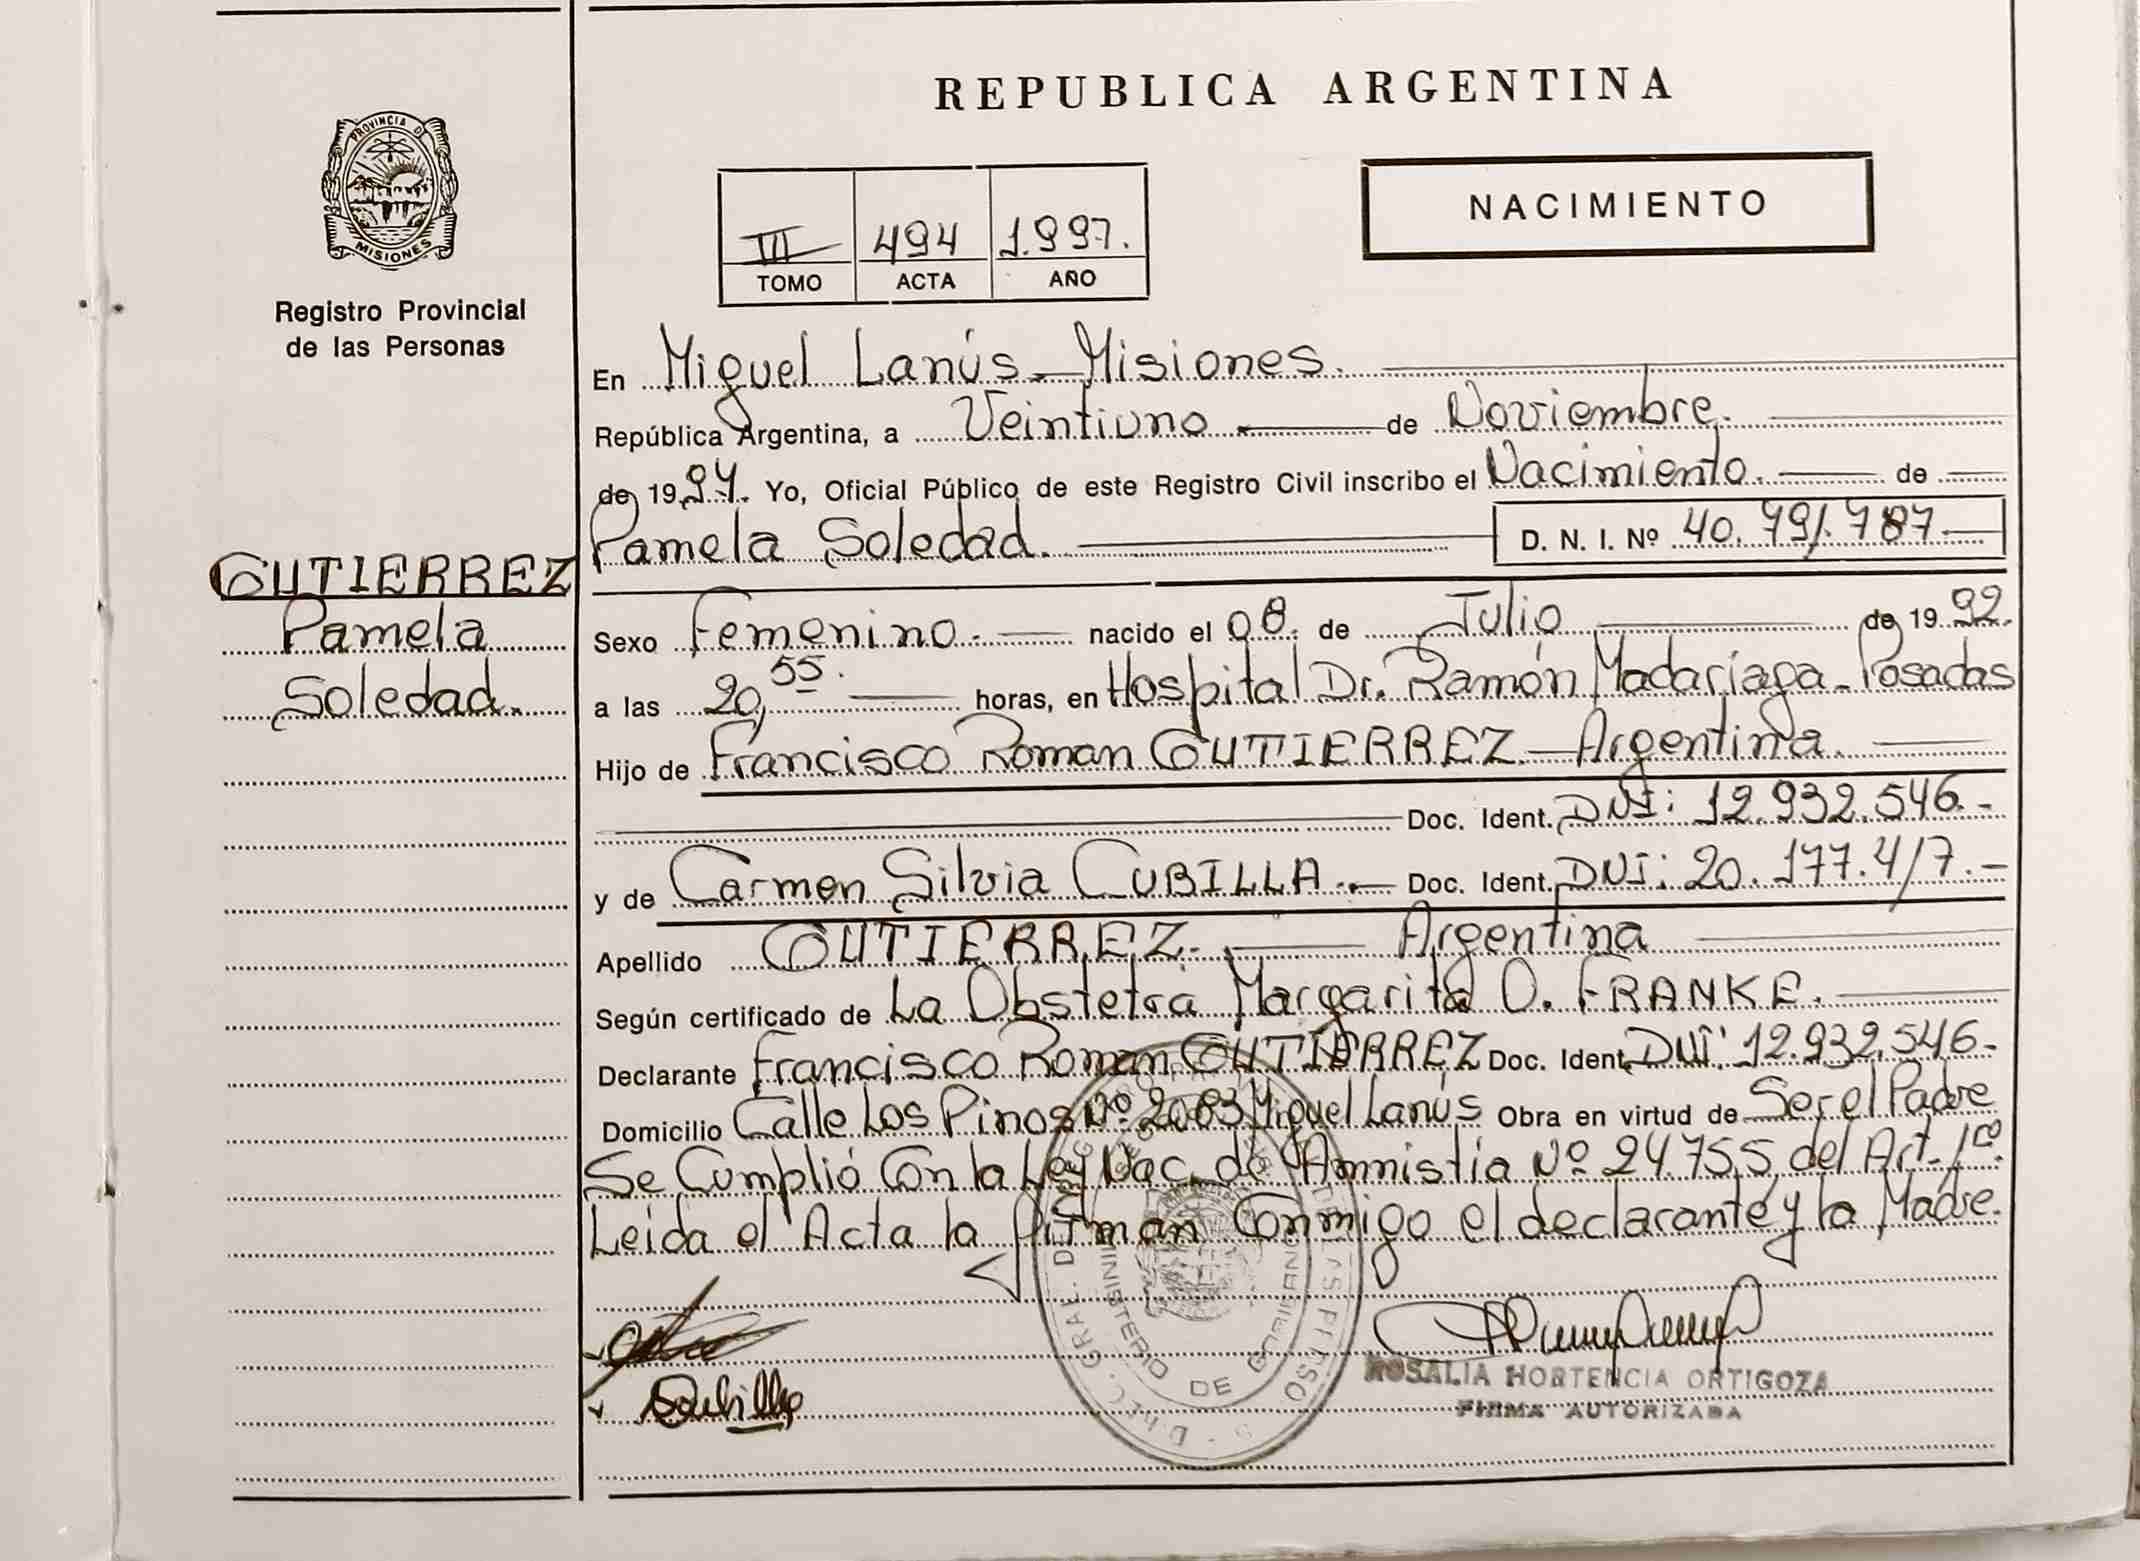 REPUBLICA ARGENTINA
PROVINCIA D
MISIONES
Registro Provincial
de las Personas
NACIMIENTO
III 494 1.997.
TOMO ACTA AÑO
En Miguel Lanús - Misiones.
República Argentina, a Veintiuno de Noviembre.
de 1997. Yo, Oficial Público de este Registro Civil inscribo el Nacimiento. de
Pamela Soledad. D. N. I. Nº 40.791.787
GUTIERREZ
Pamela
Soledad.
Sexo Femenino. nacido el 08. de Julio de 1992.
a las 20,55. horas, en Hospital Dr. Ramón Madariaga - Posadas
Hijo de Francisco Roman GUTIERREZ - Argentina.
Doc. Ident. DNI: 12.932.546.-
y de Carmen Silvia CUBILLA.- Doc. Ident. DNI: 20.177.417.-
Apellido GUTIERREZ. Argentina
Según certificado de La Obstetra Margarita O. FRANKE.
Declarante Francisco Roman GUTIERREZ Doc. Ident. DNI: 12.932.546.-
Domicilio Calle Los Pinos Nº 2083 Miguel Lanús Obra en virtud de Ser el Padre
Se Cumplió Con la Ley Nac. de Amnistía Nº 24.755 del Art. 1º.
Leida el Acta la firman Conmigo el declarante y la Madre.
MINISTERIO DE GOBIERNO
ROSALIA HORTENCIA ORTIGOZA
FIRMA AUTORIZADA